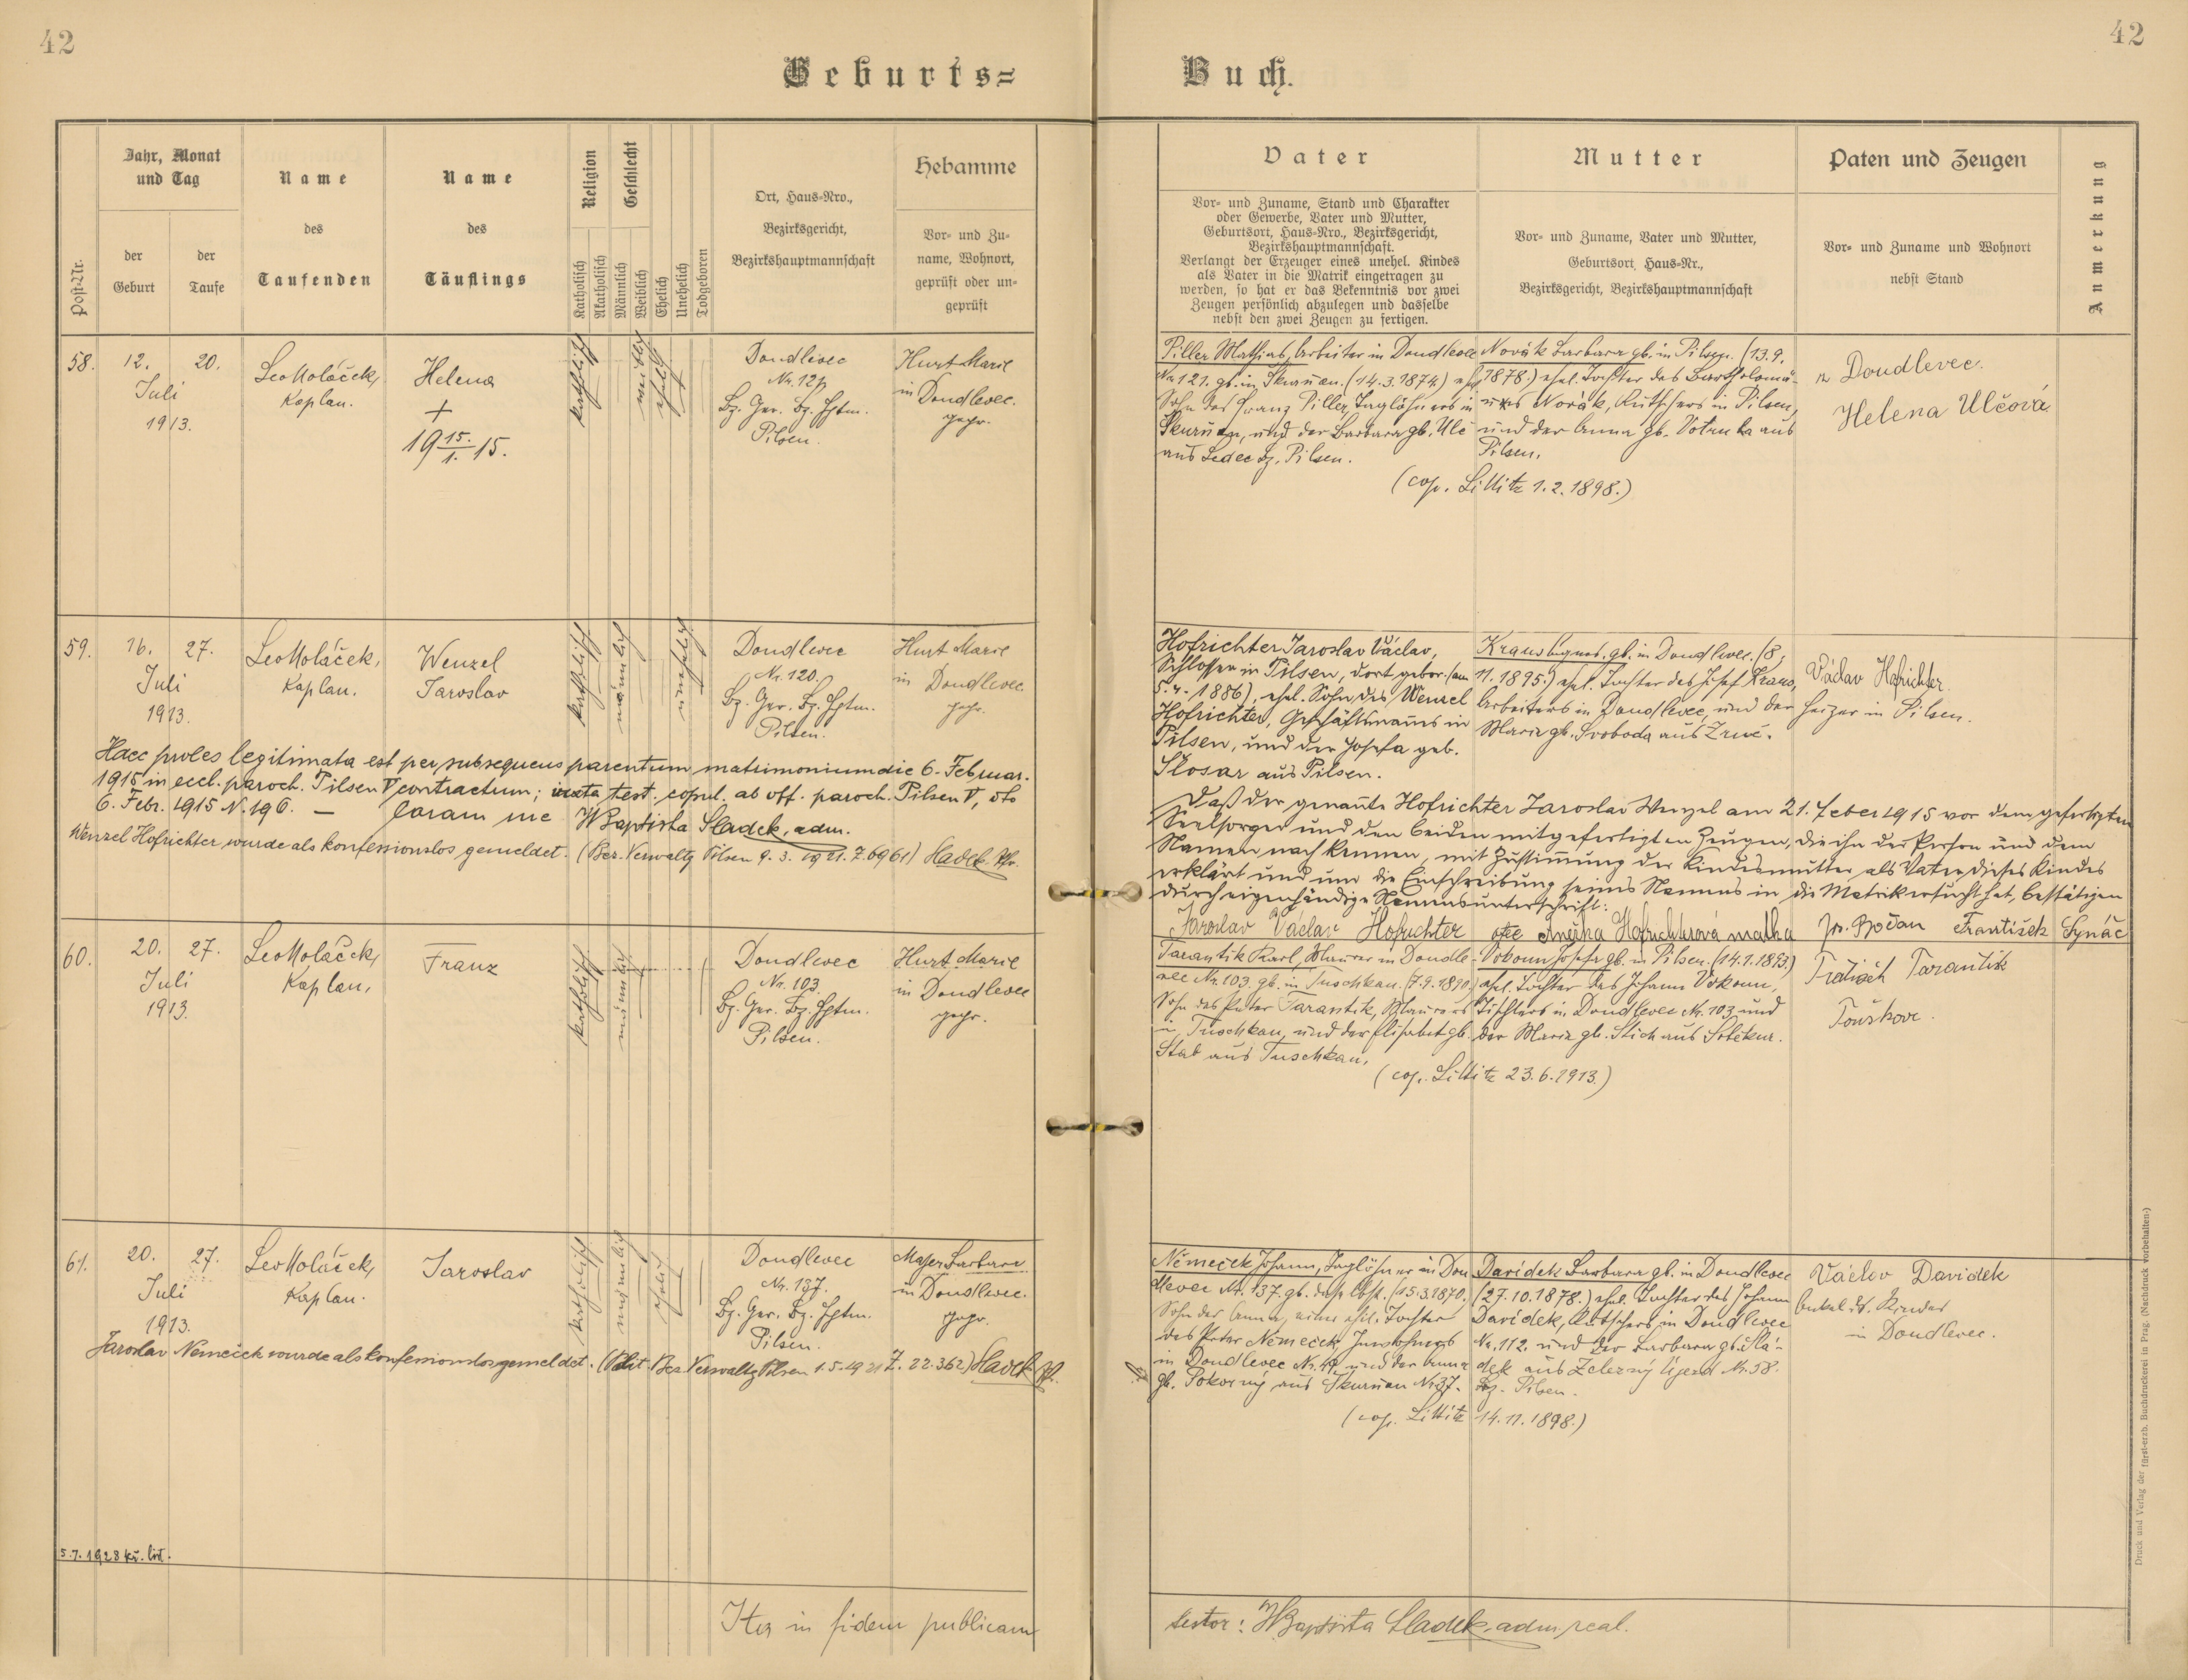 42
42
Geburts=
Buch.
Post-Nr.
Jahr, Monat
und Tag
der
Geburt
der
Taufe
Name
des
Taufenden
Name
des
Täuflings
Religion
Katholisch
Akatholisch
Geschlecht
Männlich
Weiblich
Ehelich
Unehelich
Todgeboren
Ort, Haus-Nro.,
Bezirksgericht,
Bezirkshauptmannschaft
Hebamme
Vor- und Zu-
name, Wohnort,
geprüft oder un-
geprüft
Vater
Vor- und Zuname, Stand und Charakter
oder Gewerbe, Vater und Mutter,
Geburtsort, Haus-Nro., Bezirksgericht,
Bezirkshauptmannschaft.
Verlangt der Erzeuger eines unehel. Kindes
als Vater in die Matrik eingetragen zu
werden, so hat er das Bekenntnis vor zwei
Zeugen persönlich abzulegen und dasselbe
nebst den zwei Zeugen zu fertigen.
Mutter
Vor- und Zuname, Vater und Mutter,
Geburtsort, Haus-Nr.,
Bezirksgericht, Bezirkshauptmannschaft
Paten und Zeugen
Vor- und Zuname und Wohnort
nebst Stand
Anmerkung
58.
12.
Juli
1913.
20.
Leo Holáček,
Kaplan.
Helena
+
19 15./1. 15.
katholisch
weiblich
ehelich
Doudlevec
Nr. 121
Bz. Ger. Bz. Hptm.
Pilsen.
Hurt Marie
in Doudlevec.
gepr.
Piller Mathias, Arbeiter in Doudlevec
Nr. 121. gb. in Skurňan. (14.3.1874) ehl.
Sohn des Franz Piller, Taglöhners in
Skurňan, und der Barbara gb. Ulč
aus Ledec Bz. Pilsen.
Novák Barbara gb. in Pilsen. (13.9.
1878.) ehel. Tochter des Bartholomä-
us Novák, Kutschers in Pilsen,
und der Anna gb. Votruba aus
Pilsen.
(cop. Littitz 1.2.1898.)
z Doudlevec.
Helena Ulčová
59.
16.
Juli
1913.
27.
Leo Holáček,
Kaplan.
Wenzel
Jaroslav
katholisch
männlich
unehelich
Doudlevec
Nr. 120.
Bz. Ger. Bz. Hptm.
Pilsen.
Hurt Marie
in Doudlevec
gepr.
Hofrichter Jaroslav Václav,
Schlosser in Pilsen, dort gebor. (am
5. 4. 1886), ehel. Sohn des Wenzel
Hofrichter, Geschäftsmanns in
Pilsen, und der Josefa geb.
Slosar aus Pilsen.
Kraus Agnes. gb. in Doudlevec. (8.
11. 1895.) ehel. Tochter des Josef Kraus,
Arbeiters in Doudlevec, und der
Maria gb. Svoboda aus Zruč.
Václav Hofrichter
Heizer in Pilsen.
Haec proles legitimata est per subsequens parentum matrimonium die 6. Februar.
1915 in eccl. paroch. Pilsen V contractum; iuxta test. copul. ab off. paroch. Pilsen V, dto
6. Febr. 1915 N. 196. — Coram me JBaptista Sladek, adm.
Wenzel Hofrichter wurde als konfessionslos gemeldet. (Bez. Verwaltg Pilsen 9. 3. 1921. Z. 6961) Sladek
Daß der genannte Hofrichter Jaroslav Wenzel am 21. Feber 1915 vor dem gefertigten
Seelsorger und den beiden mitgefertigten Zeugen, die ihn der Person und dem
Namen nach kennen, mit Zustimmung der Kindesmutter als Vater dieses Kindes
erklärt und um die Einschreibung seines Namens in die Matrik ersucht hat, bestätigen
durch eigenhändige Namensunterschrift:
Jaroslav Václav Hofrichter otec Anežka Hofrichtrová matka Jos. Bočan František Synáč
60.
20.
Juli
1913.
27.
Leo Holáček,
Kaplan.
Franz
katholisch
männlich
Doudlevec
Nr. 103.
Bz. Ger. Bz. Hptm.
Pilsen.
Hurt Marie
in Doudlevec
gepr.
Tarantik Karl, Maurer in Doudle-
vec Nr. 103. gb. in Tuschkau. (7.9.1890.)
Sohn des Peter Tarantik, Maurers
in Tuschkau, und der Elisabet gb.
Stab aus Tuschkau.
Vokoun Josefa gb. in Pilsen. (14.1.1893.)
ehel. Tochter des Johann Vokoun,
Tischlers in Doudlevec Nr. 103 und
der Maria gb. Stich aus
(cop. Littitz 23.6.1913.)
Tarantik
Touškov.
61.
20.
Juli
1913.
27.
Leo Holáček,
Kaplan.
Jaroslav
katholisch
männlich
ehelich
Doudlevec
Nr. 137.
Bz. Ger. Bz. Hptm.
Pilsen.
Majer Barbara
in Doudlevec.
gepr.
Němeček Johann, Taglöhner in Dou
dlevec Nr. 137. gb. (15.3.1870.)
Sohn der Anna, einer ehel. Tochter
des Peter Němeček,
in Doudlevec Nr. 47, und der Anna
gb. Pokorný aus Skurňan Nr. 37.
Davídek Barbara gb. in Doudlevec
(27.10.1878.) ehel. Tochter des Johann
Davídek, Kutschers in Doudlevec
Nr. 112. und der Barbara gb. Slá-
dek aus Železný Újezd Nr. 58.
Bz. Pilsen.
(cop. Littitz 14.11.1898.)
Václav Davidek
Onkel d. Kindes
in Doudlevec.
Jaroslav Němeček wurde als konfessionslos gemeldet. (Polit. Bez. Verwaltg Pilsen 1.5.1921 Z. 22.362) Sladek
5.7.1928 kř. list.
Ita in fidem publicam
testor: JBaptista Sladek, adm. real.
Druck und Verlag der fürst-erzb. Buchdruckerei in Prag. (Nachdruck vorbehalten.)